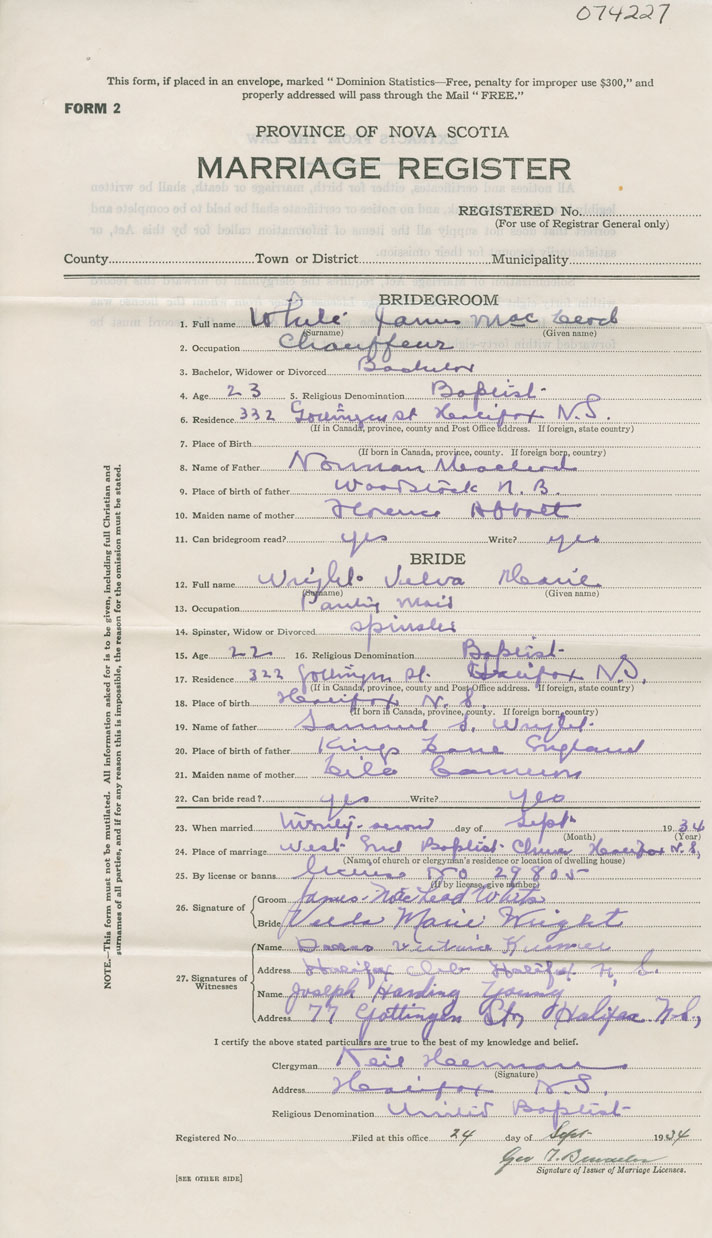 074227
This form, if placed in an envelope, marked " Dominion Statistics—Free, penalty for improper use $300," and
properly addressed will pass through the Mail " FREE."
FORM 2
PROVINCE OF NOVA SCOTIA
MARRIAGE REGISTER
REGISTERED No.
(For use of Registrar General only)
County Town or District Municipality
BRIDEGROOM
1. Full name White James Mac Leod
(Surname) (Given name)
2. Occupation Chauffeur
3. Bachelor, Widower or Divorced Bachelor
4. Age 23 5. Religious Denomination Baptist
6. Residence 332 Gottingen St Halifax N.S.
(If in Canada, province, county and Post Office address. If foreign, state country)
7. Place of Birth
(If born in Canada, province, county. If foreign born, country)
8. Name of Father Norman Macleod
9. Place of birth of father Woodstock N.B.
10. Maiden name of mother Florence Abbott
11. Can bridegroom read? yes Write? yes
BRIDE
12. Full name Wright Velva Marie
(Surname) (Given name)
13. Occupation Pantry Maid
14. Spinster, Widow or Divorced spinster
15. Age 22 16. Religious Denomination Baptist
17. Residence 322 Gottingen St. Halifax N.S.
(If in Canada, province, county and Post Office address. If foreign, state country)
18. Place of birth Halifax N.S.
(If born in Canada, province, county. If foreign born, country)
19. Name of father Samuel S. Wright
20. Place of birth of father Kings Lane England
21. Maiden name of mother Lila Cameron
22. Can bride read? yes Write? yes
23. When married Twenty-second day of Sept 1934
(Month) (Year)
24. Place of marriage West End Baptist Church Halifax N.S.
(Name of church or clergyman's residence or location of dwelling house)
25. By license or banns License No 29805
(If by license, give number)
26. Signature of Groom James MacLead White
Bride Marie Wright
27. Signatures of Witnesses Name
Address Halifax Club Halifax N. S.
Name Joseph Harding Young
Address 77 Gottingen St, Halifax N.S,
I certify the above stated particulars are true to the best of my knowledge and belief.
Clergyman Neil Herman
(Signature)
Address Halifax N.S.
Religious Denomination United Baptist
Registered No. Filed at this office 24 day of Sept 1934
Geo T.
Signature of Issuer of Marriage Licenses.
[SEE OTHER SIDE]
NOTE.—This form must not be mutilated. All information asked for is to be given, including full Christian and
surnames of all parties, and if for any reason this is impossible, the reason for the omission must be stated.